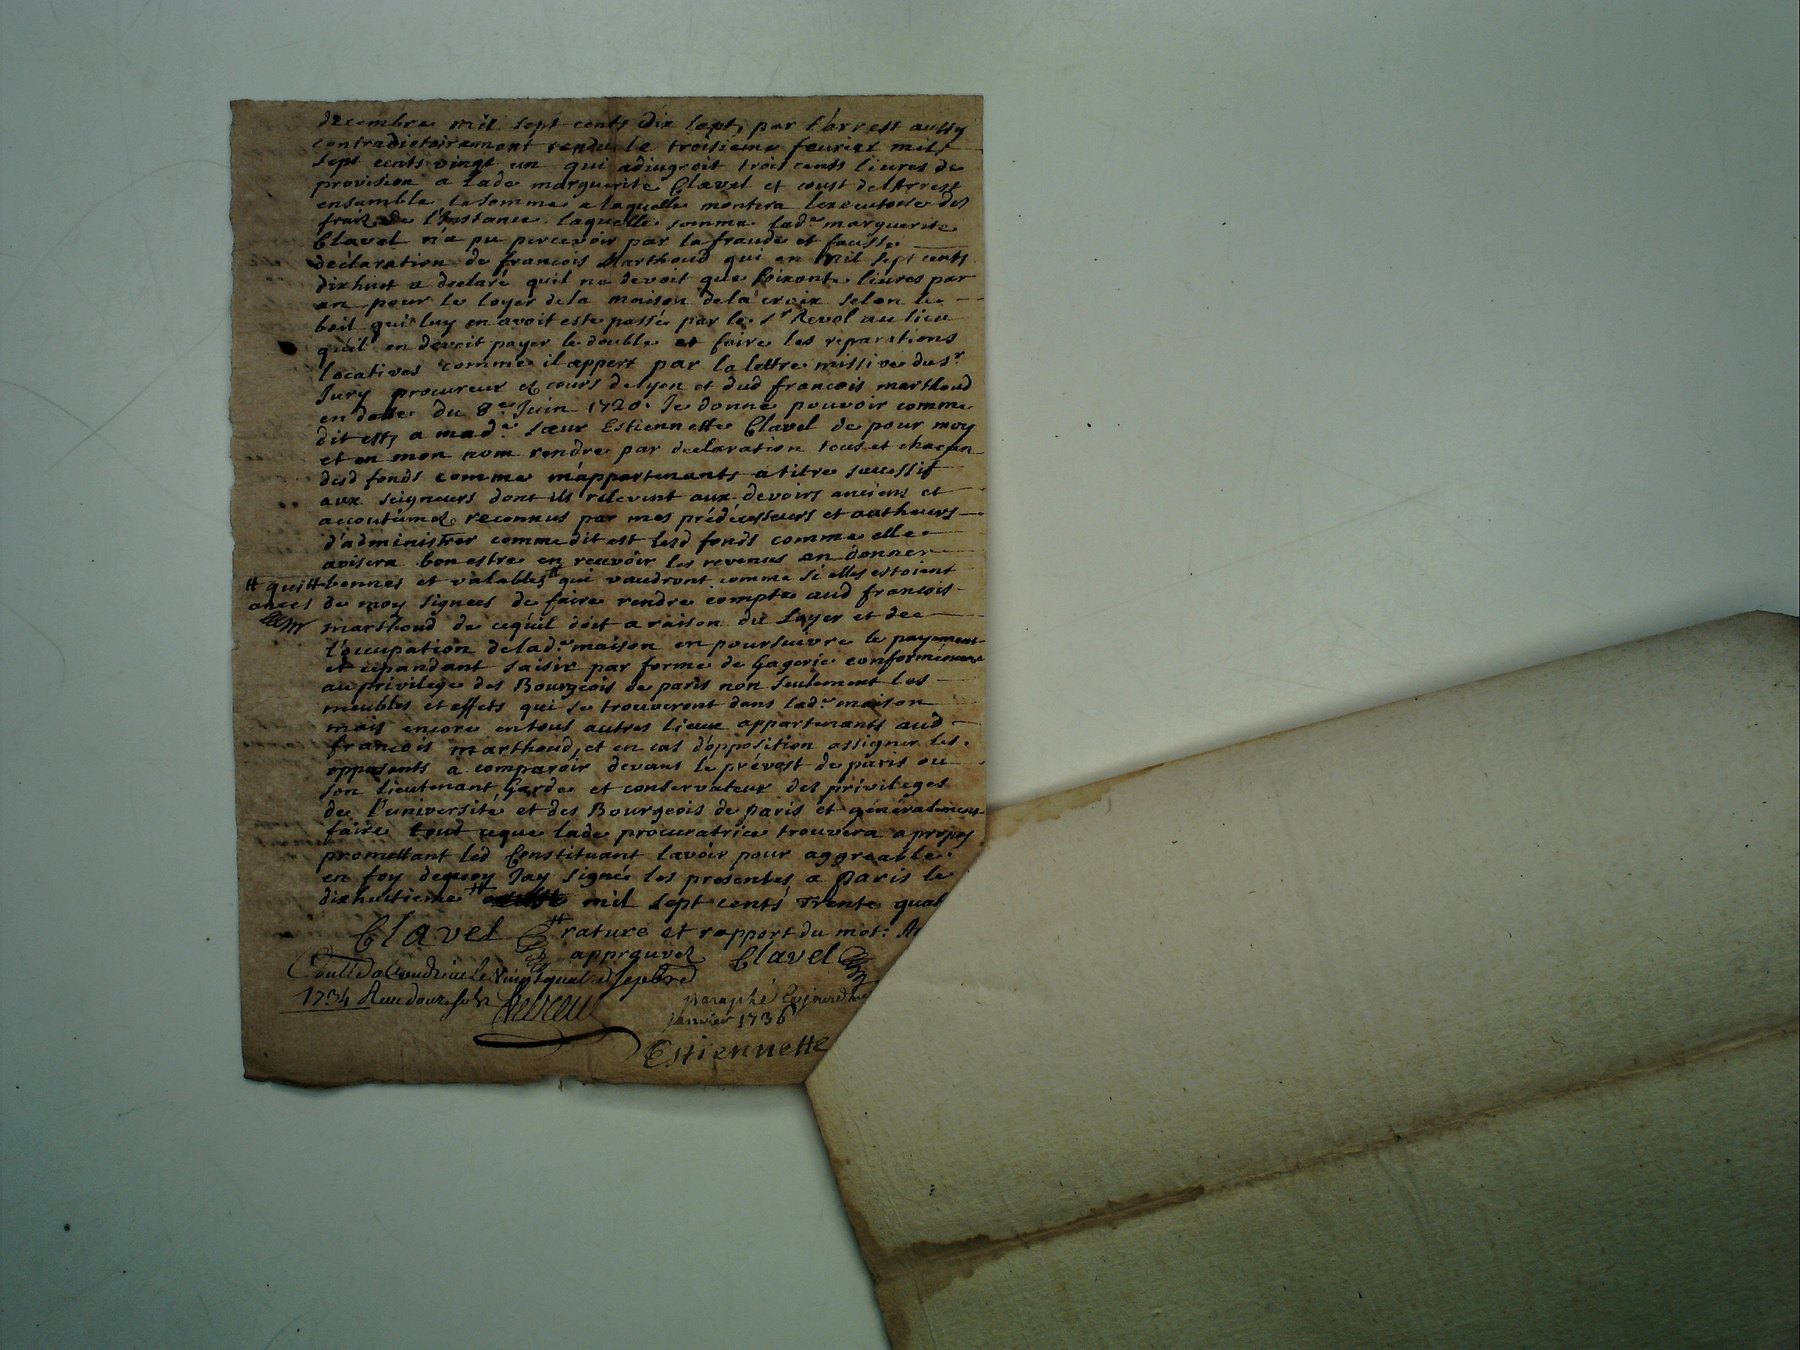 decembre mil sept cents dix sept, par l'arrest aussy
contradictoirement rendu le troisieme feurier mil
sept cents vingt un qui adiugeoit trois cents liures de
provision a lade marguerite Clavel et coust de l'Arrest
ensemble la somme a laquelle montera lexecutoire des
frais de l'Instance laquelle somme lad.e marguerite
Clavel n'a pu percevoir par la fraude et fausse
declaration de francois Marthoud qui en mil sept cents
dixhuit a declaré quil ne devoit que soixante liures par
an pour le loyer dela maison dela croix selon le
bail qui luy en avoit este passé par le Sr Revol au lieu
qu'il en devoit payer le double et faire les reparations
locatives comme il appert par la lettre missive du sr
Jury procureur es cours de lyon et dud francois marthoud
en datte du 8e Juin 1720. Je donne pouvoir comme
dit est, a made sœur Estiennette Clavel de pour moy
et en mon nom rendre par declaration tous et chacun
desd fonds comme m'appartenants a titre successif
aux seigneurs dont ils relevent aux devoirs anciens et
accoutumez reconnus par mes prédécesseurs et autheurs
d'administrer comme dit est lesd fonds comme elle
avisera bon estre en recevoir les revenus en donner
# quitt bonnes et valables # qui vaudront comme si elles estoient
ances de moy signees de faire rendre compte aud francois
marthoud de cequil doit a raison du Loyer et de
l'occupation delad.e maison en poursuivre le payement
et cependant saisir par forme de Gagerie conformement
au privilege des Bourgeois de paris non seulement les
meubles et effets qui se trouveront dans lad.e maison
mais encore en tous autres lieux appartenants aud
francois marthoud, et en cas d'opposition assigner les
opposants a comparoir devant le prévost de paris ou
son lieutenant, Garde et conservateur des privileges
de l'université et des Bourgeois de paris et généralement
faire tout ceque lade procuratrice trouvera a propos
promettant led Constituant lavoir pour aggreable
en foy dequoy Jay signé les presentes a paris le
dixhuitieme # mil sept cents Trente quat
Clavel # rature et rapport du mot:
approuvez Clavel
le vingt quatre 7bre
1734 Recu douze sols
paraphé
Janvier 1736
Estiennette